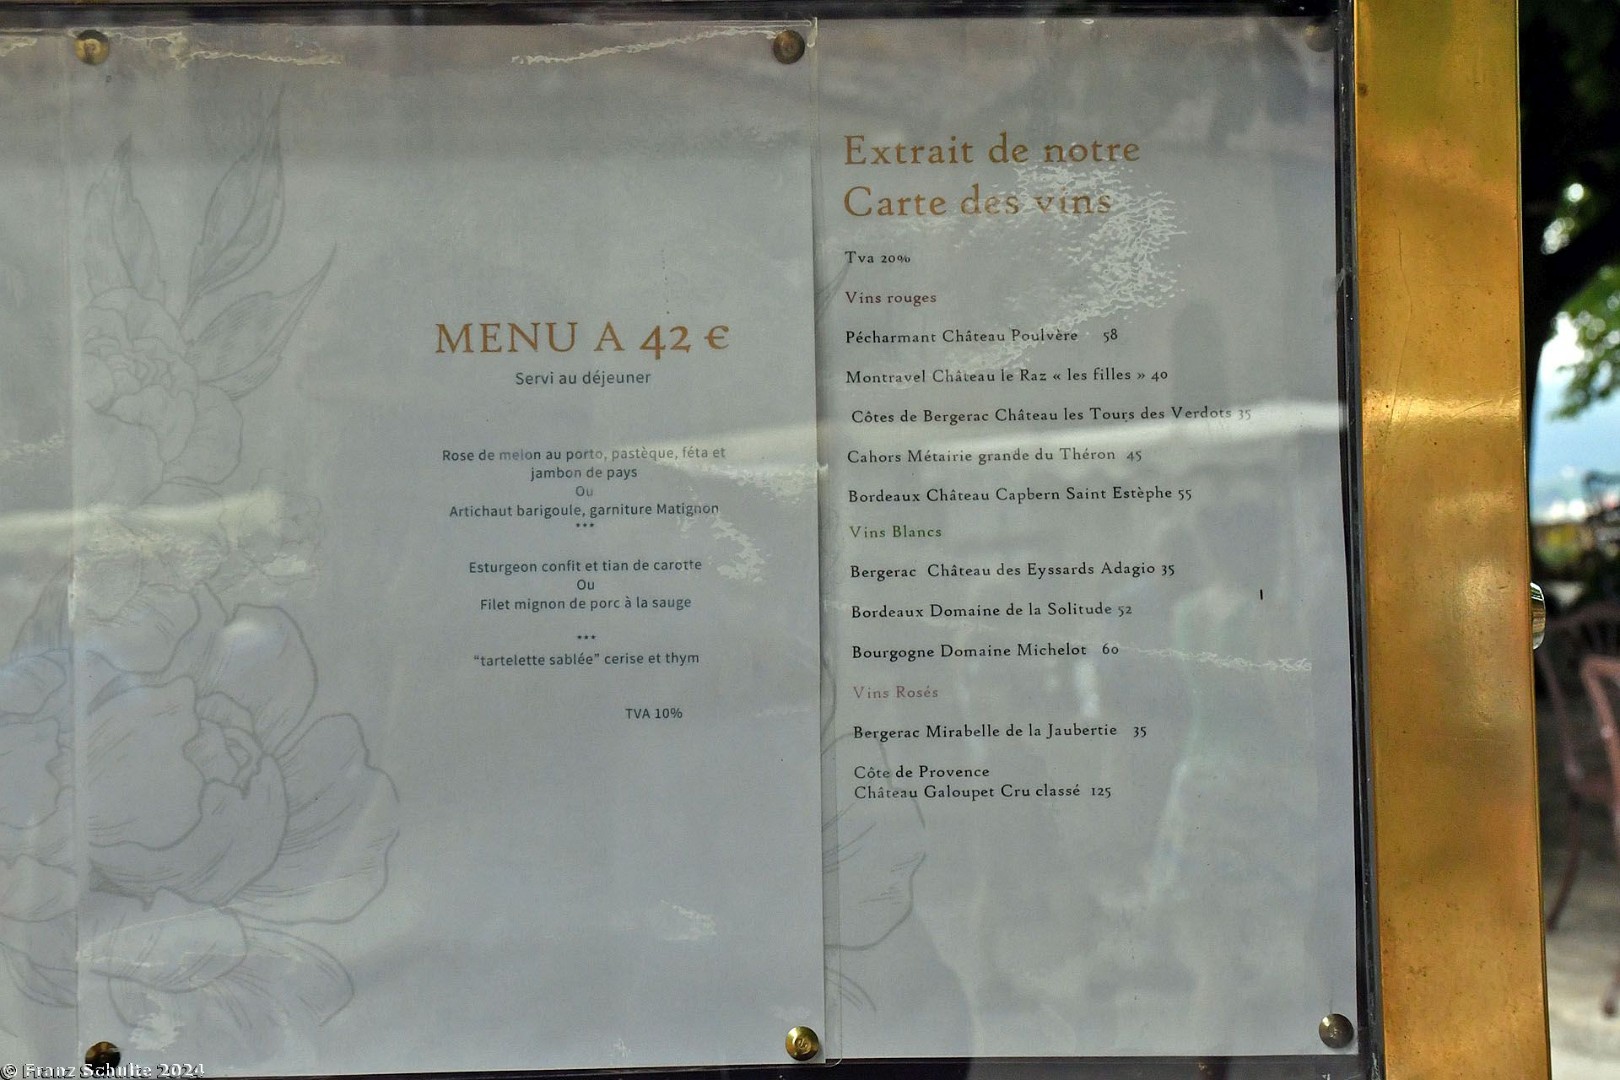 MENU A 42 €
Servi au déjeuner
Rose de melon au porto, pastèque, féta et
jambon de pays
Ou
Artichaut barigoule, garniture Matignon
***
Esturgeon confit et tian de carotte
Ou
Filet mignon de porc à la sauge
***
“tartelette sablée” cerise et thym
TVA 10%
Extrait de notre
Carte des vins
Tva 20%
Vins rouges
Pécharmant Château Poulvère 58
Montravel Château le Raz « les filles » 40
Côtes de Bergerac Château les Tours des Verdots 35
Cahors Métairie grande du Théron 45
Bordeaux Château Capbern Saint Estèphe 55
Vins Blancs
Bergerac Château des Eyssards Adagio 35
Bordeaux Domaine de la Solitude 52
Bourgogne Domaine Michelot 60
Vins Rosés
Bergerac Mirabelle de la Jaubertie 35
Côte de Provence
Château Galoupet Cru classé 125
© Franz Schulte 2024